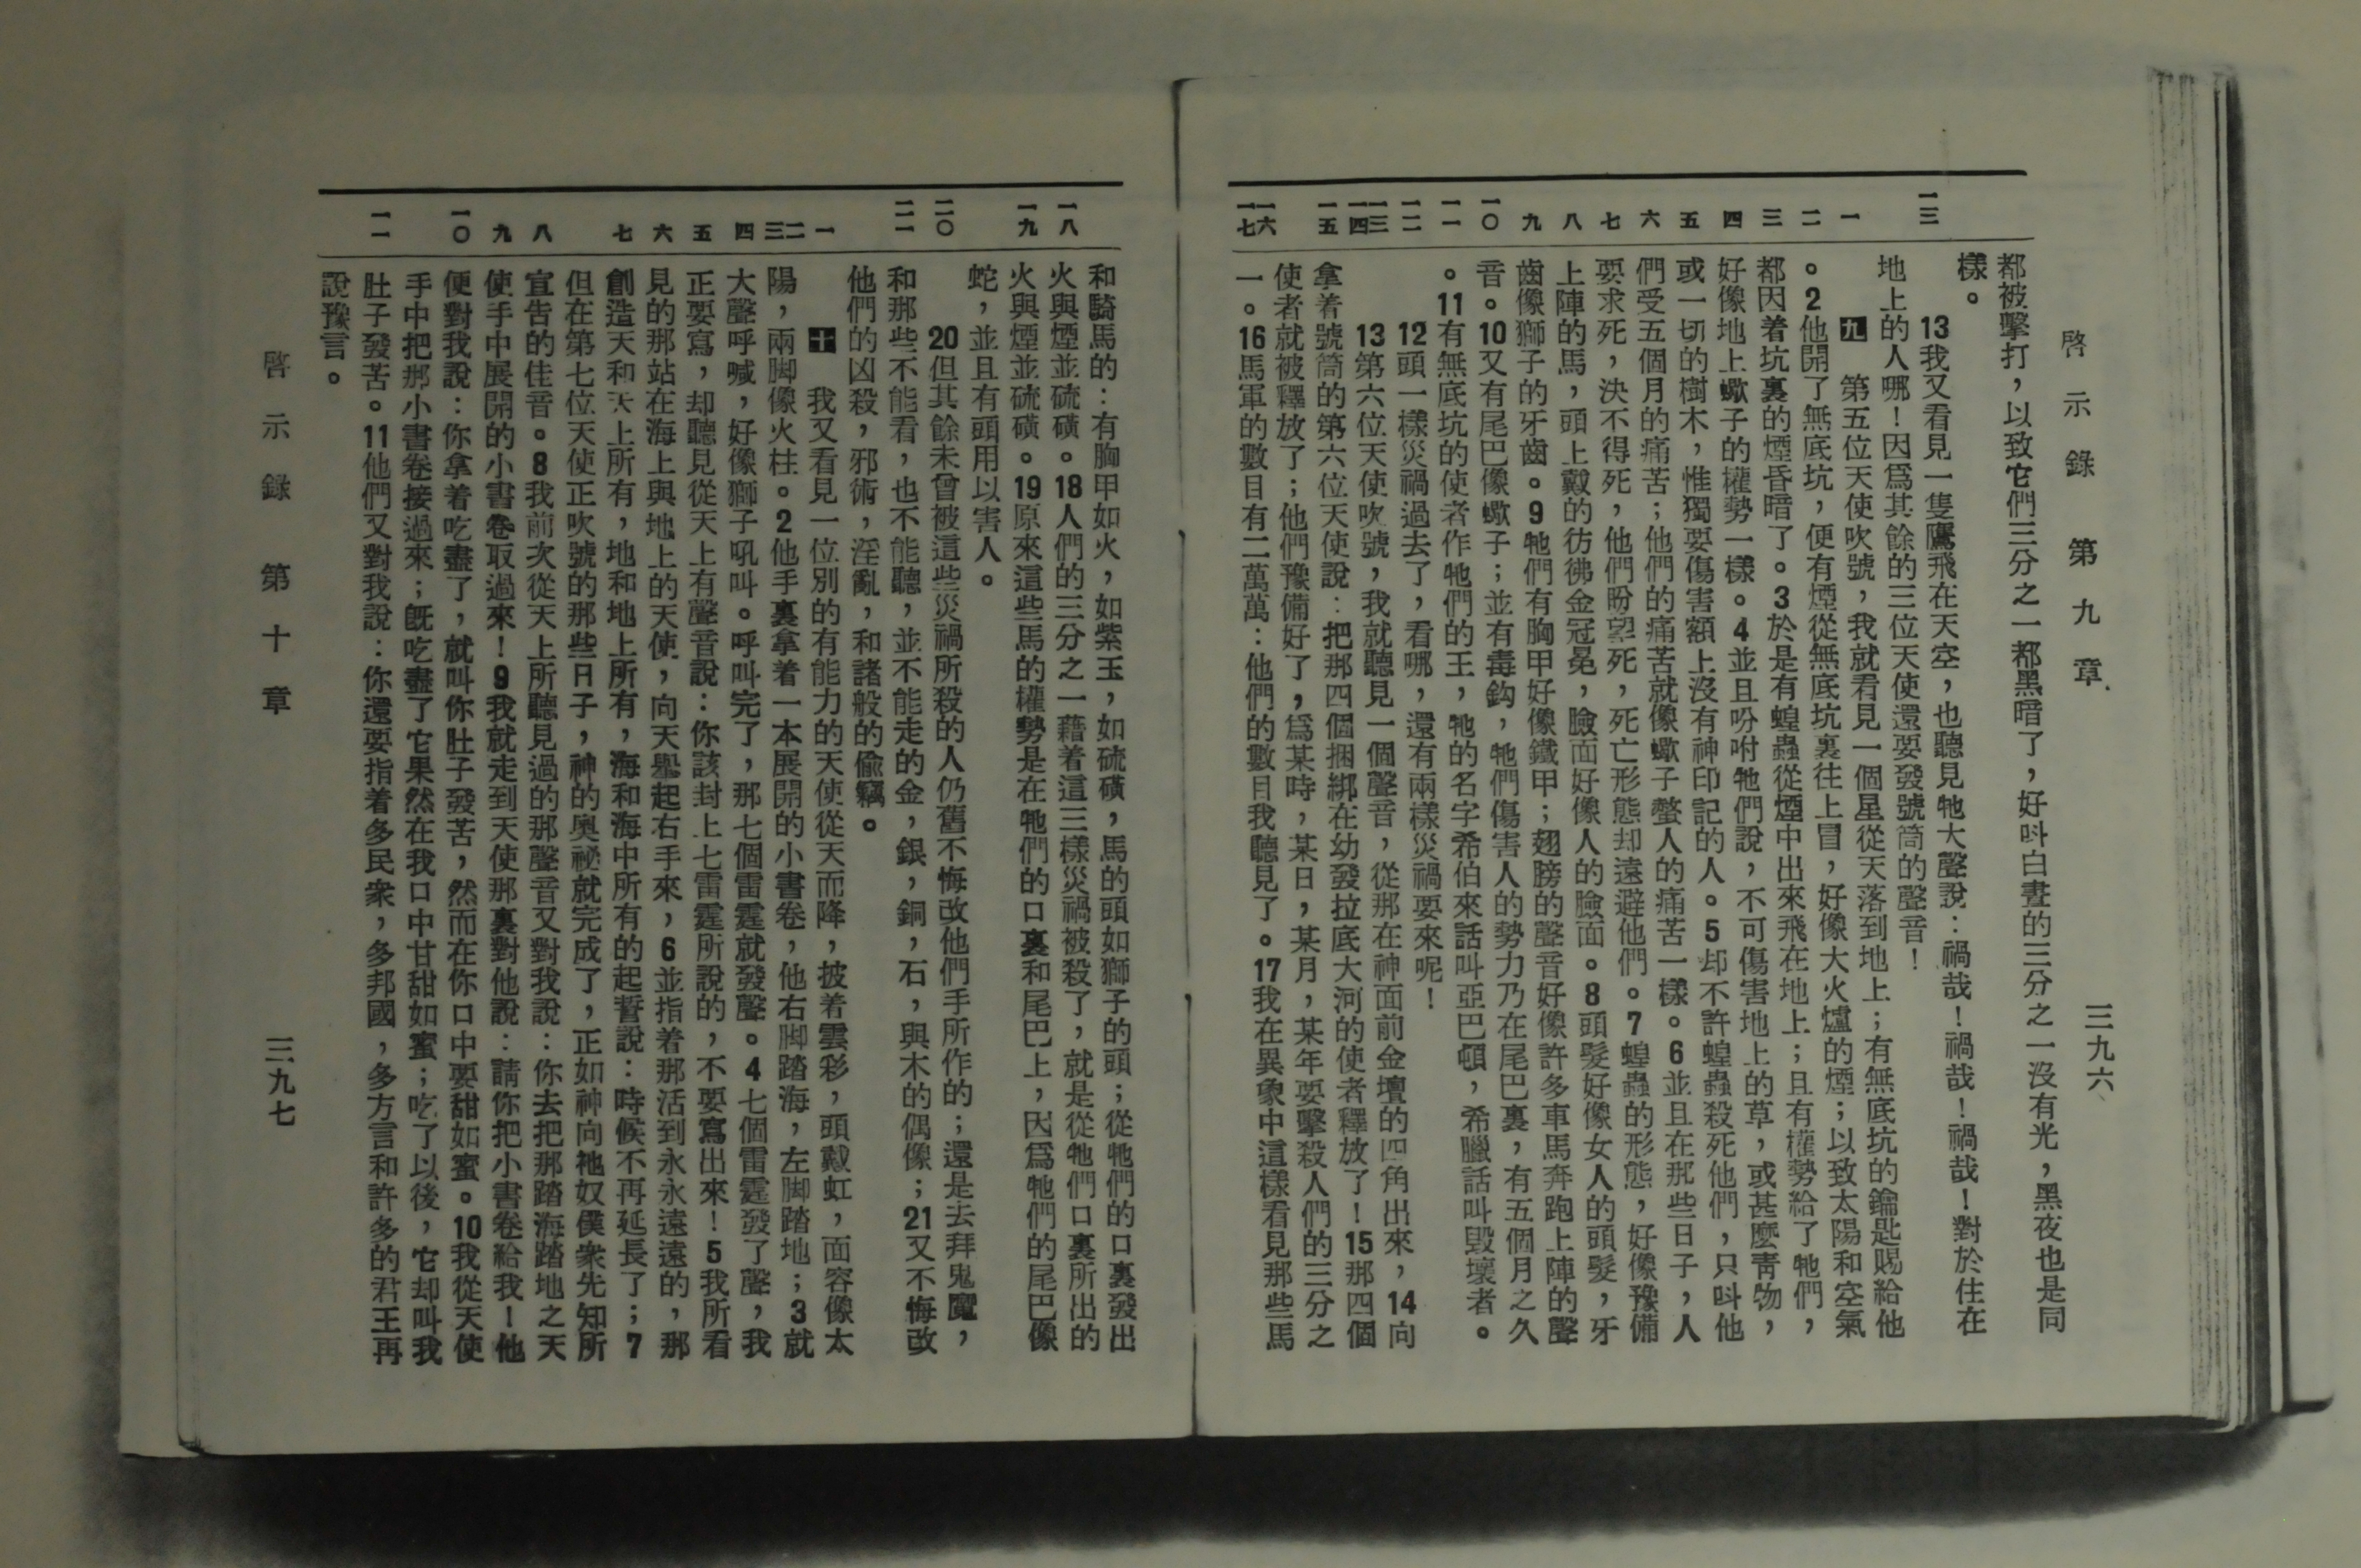 啓示錄 第九章 三九六
一三 一 二 三 四 五 六 七 八 九 一〇 一一 一二 一三 一四 一五 一六 一七
都被擊打，以致它們三分之一都黑暗了，好叫白晝的三分之一沒有光，黑夜也是同
樣。
13我又看見一隻鷹飛在天空，也聽見牠大聲說：禍哉！禍哉！禍哉！對於住在
地上的人哪！因爲其餘的三位天使還要發號筒的聲音！
九 第五位天使吹號，我就看見一個星從天落到地上；有無底坑的鑰匙賜給他
。2他開了無底坑，便有煙從無底坑裏往上冒，好像大火爐的煙；以致太陽和空氣
都因着坑裏的煙昏暗了。3於是有蝗蟲從煙中出來飛在地上；且有權勢給了牠們，
好像地上蠍子的權勢一樣。4並且吩咐牠們說，不可傷害地上的草，或甚麼青物，
或一切的樹木，惟獨要傷害額上沒有神印記的人。5却不許蝗蟲殺死他們，只叫他
們受五個月的痛苦；他們的痛苦就像蠍子螫人的痛苦一樣。6並且在那些日子，人
要求死，決不得死，他們盼望死，死亡形態却遠避他們。7蝗蟲的形態，好像豫備
上陣的馬，頭上戴的彷彿金冠冕，臉面好像人的臉面。8頭髮好像女人的頭髮，牙
齒像獅子的牙齒。9牠們有胸甲好像鐵甲；翅膀的聲音好像許多車馬奔跑上陣的聲
音。10又有尾巴像蠍子；並有毒鈎，牠們傷害人的勢力乃在尾巴裏，有五個月之久
。11有無底坑的使者作牠們的王，牠的名字希伯來話叫亞巴頓，希臘話叫毀壞者。
12頭一樣災禍過去了，看哪，還有兩樣災禍要來呢！
13第六位天使吹號，我就聽見一個聲音，從那在神面前金壇的四角出來，14向
拿着號筒的第六位天使說：把那四個捆綁在幼發拉底大河的使者釋放了！15那四個
使者就被釋放了；他們豫備好了，爲某時，某日，某月，某年要擊殺人們的三分之
一。16馬軍的數目有二萬萬：他們的數目我聽見了。17我在異象中這樣看見那些馬
一八 一九 二〇 二一 一 二 三 四 五 六 七 八 九 一〇 一一
和騎馬的：有胸甲如火，如紫玉，如硫磺，馬的頭如獅子的頭；從牠們的口裏發出
火與煙並硫磺。18人們的三分之一藉着這三樣災禍被殺了，就是從牠們口裏所出的
火與煙並硫磺。19原來這些馬的權勢是在牠們的口裏和尾巴上，因爲牠們的尾巴像
蛇，並且有頭用以害人。
20但其餘未曾被這些災禍所殺的人仍舊不悔改他們手所作的；還是去拜鬼魔，
和那些不能看，也不能聽，並不能走的金，銀，銅，石，與木的偶像；21又不悔改
他們的凶殺，邪術，淫亂，和諸般的偷竊。
十 我又看見一位別的有能力的天使從天而降，披着雲彩，頭戴虹，面容像太
陽，兩脚像火柱。2他手裏拿着一本展開的小書卷，他右脚踏海，左脚踏地；3就
大聲呼喊，好像獅子吼叫。呼叫完了，那七個雷霆就發聲。4七個雷霆發了聲，我
正要寫，却聽見從天上有聲音說：你該封上七雷霆所說的，不要寫出來！5我所看
見的那站在海上與地上的天使，向天舉起右手來，6並指着那活到永永遠遠的，那
創造天和天上所有，地和地上所有，海和海中所有的起誓說：時候不再延長了；7
但在第七位天使正吹號的那些日子，神的奧祕就完成了，正如神向祂奴僕衆先知所
宣告的佳音。8我前次從天上所聽見過的那聲音又對我說：你去把那踏海踏地之天
使手中展開的小書卷取過來！9我就走到天使那裏對他說：請你把小書卷給我！他
便對我說：你拿着吃盡了，就叫你肚子發苦，然而在你口中要甜如蜜。10我從天使
手中把那小書卷接過來；既吃盡了它果然在我口中甘甜如蜜；吃了以後，它却叫我
肚子發苦。11他們又對我說：你還要指着多民衆，多邦國，多方言和許多的君王再
說豫言。
啓示錄 第十章 三九七